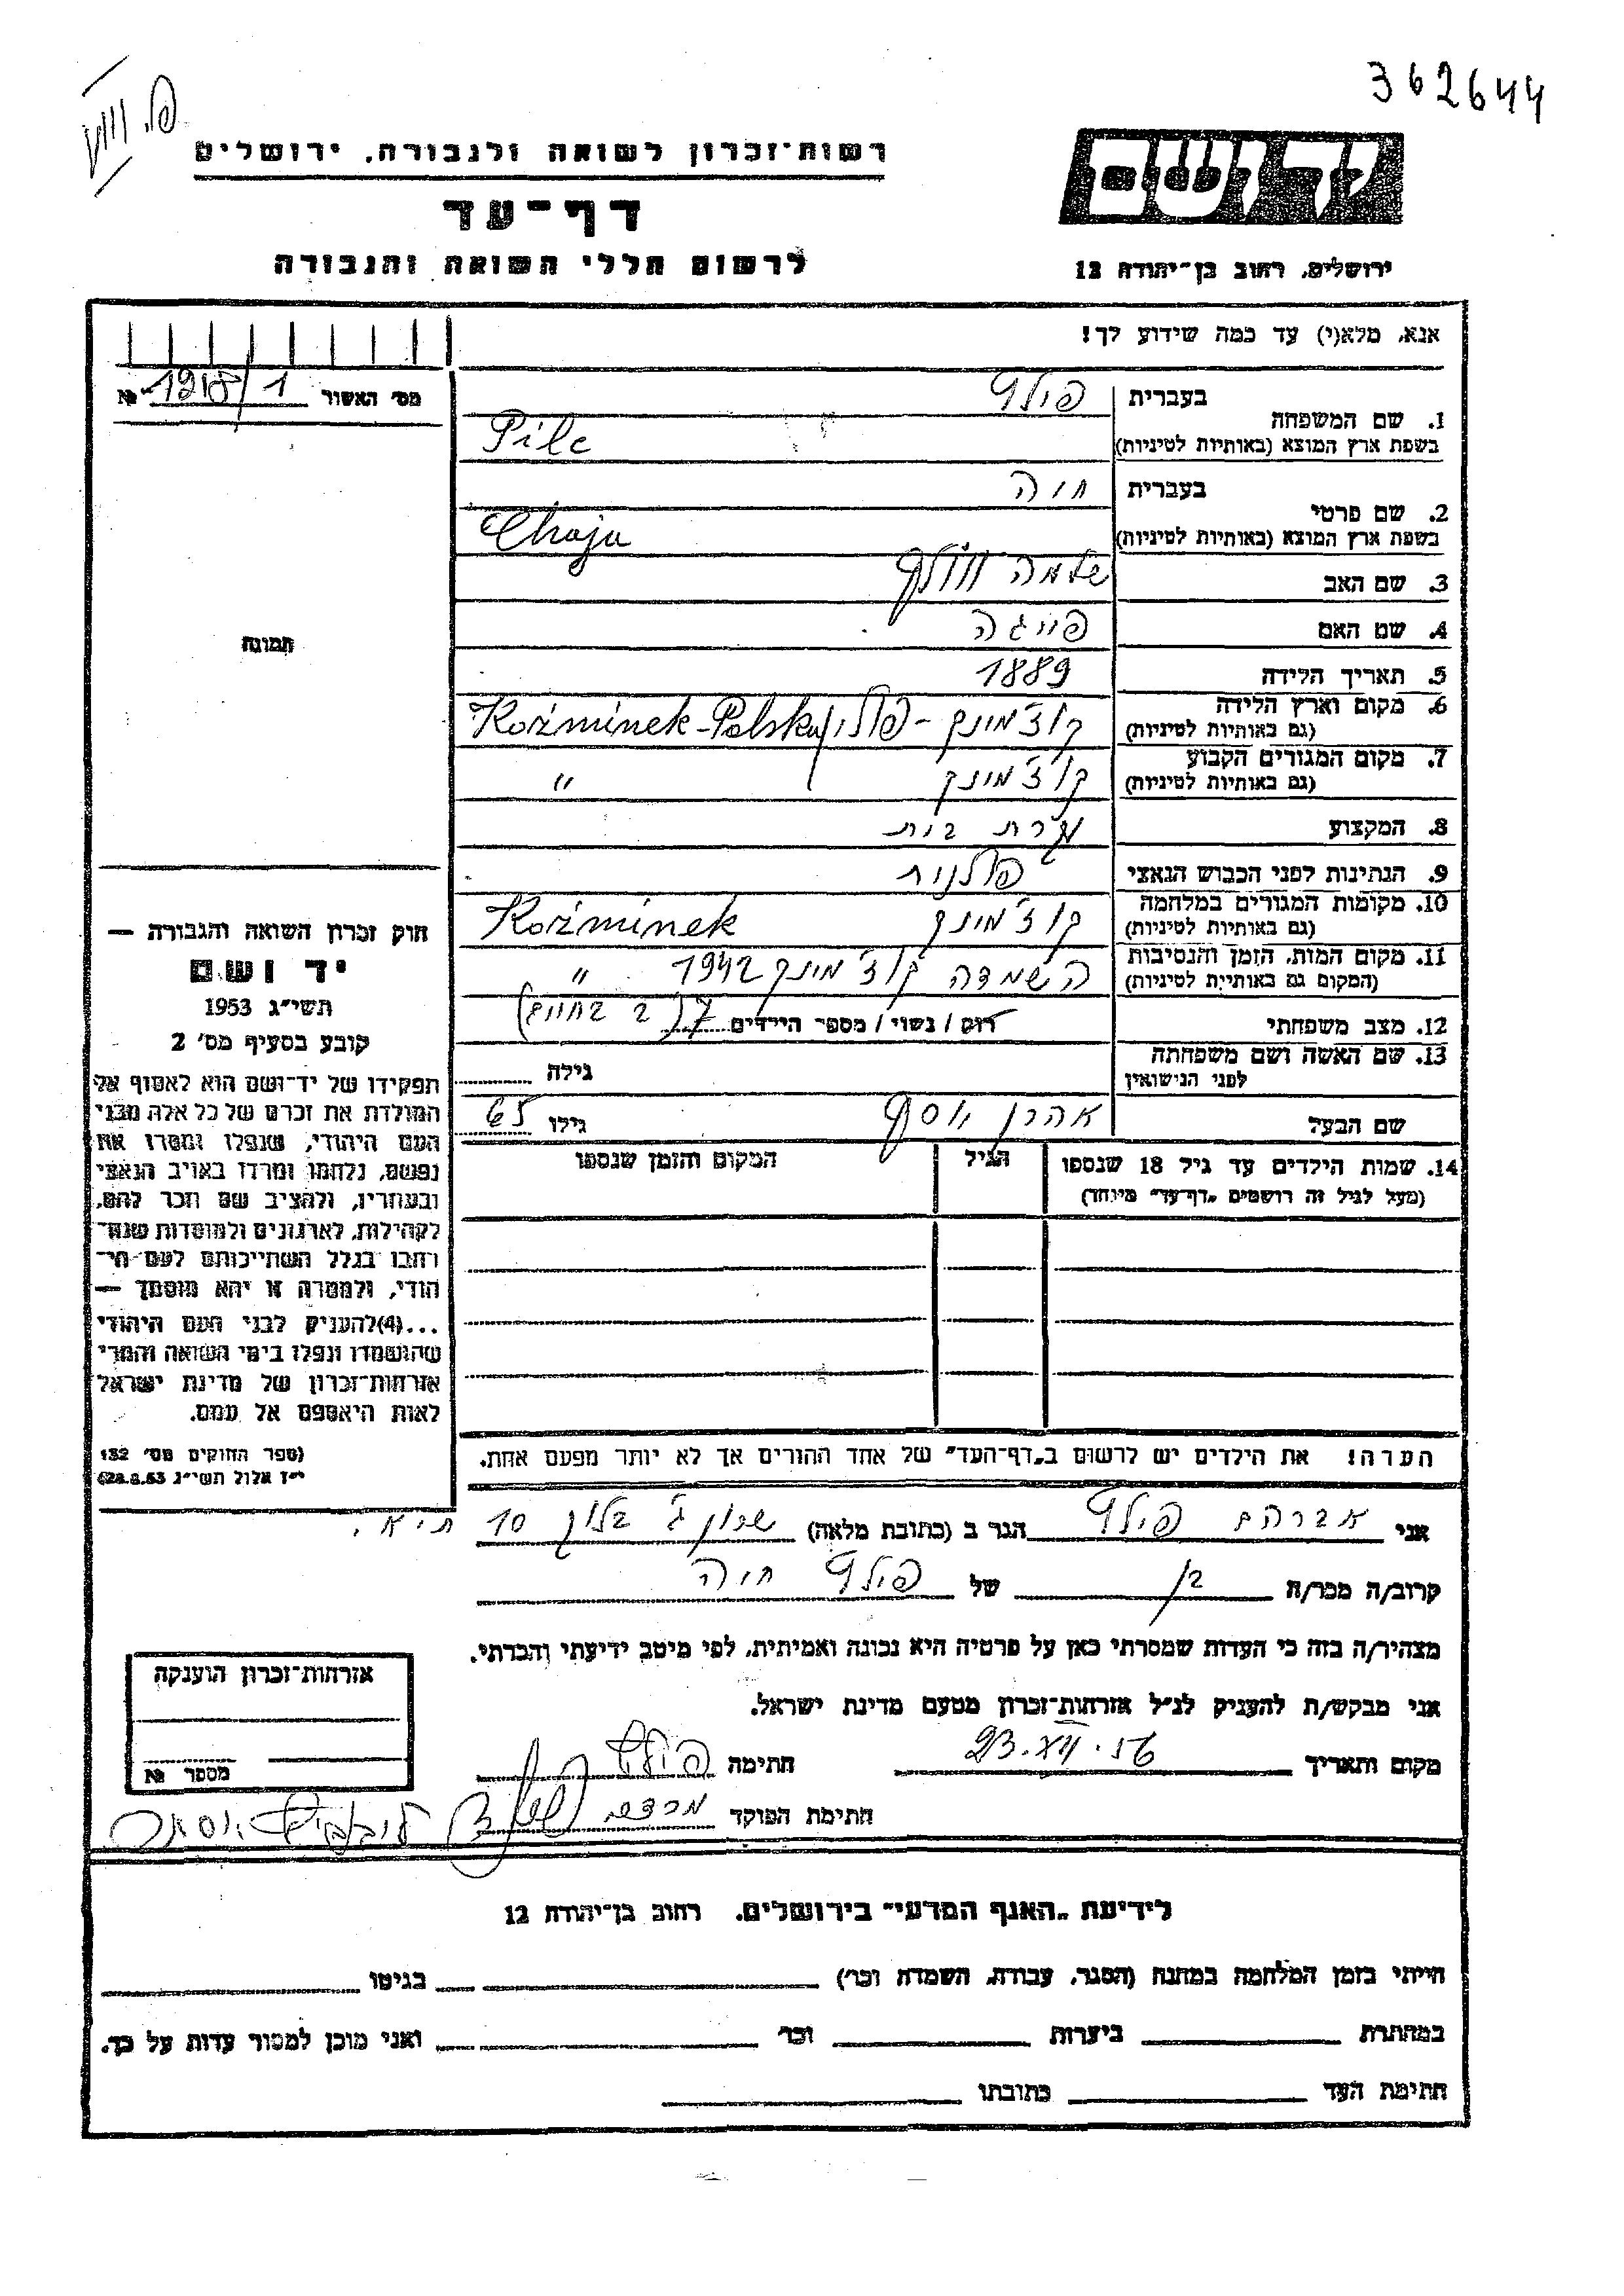 362644
רשות־זכרון לשואה ולגבורה, ירושלים
יד ושם
דף־עד
לרשום חללי השואה והגבורה
ירושלים, רחוב בן־יהודה 12
אנא, מלא(י) עד כמה שידוע לך!
מס' האשור 1218/1 №
1. שם המשפחה
בעברית פילץ
בשפת ארץ המוצא (באותיות לטיניות) Pilc
2. שם פרטי
בעברית חיה
בשפת ארץ המוצא (באותיות לטיניות) Chaja
3. שם האב שלמה וולף
4. שם האם פייגה
5. תאריך הלידה 1889
6. מקום וארץ הלידה קוז'מינק - פולין Koźminek-Polska
(גם באותיות לטיניות)
7. מקום המגורים הקבוע קוז'מינק "
(גם באותיות לטיניות)
8. המקצוע עקרת בית
9. הנתינות לפני הכבוש הנאצי פולנית
10. מקומות המגורים במלחמה קוז'מינק Koźminek
(גם באותיות לטיניות)
11. מקום המות, הזמן והנסיבות השמדה קוז'מינק 1942 "
(המקום גם באותיות לטיניות)
12. מצב משפחתי רווק / נשוי / מספר הילדים 7 (2 בחיים)
13. שם האשה ושם משפחתה
לפני הנישואין גילה
שם הבעל אהרן יוסף גילו 65
14. שמות הילדים עד גיל 18 שנספו הגיל המקום והזמן שנספו
(מעל לגיל זה רושמים "דף־עד" מיוחד)
הערה! את הילדים יש לרשום ב"דף־העד" של אחד ההורים אך לא יותר מפעם אחת.
תמונה
חוק זכרון השואה והגבורה —
יד ושם
תשי"ג 1953
קובע בסעיף מס' 2
תפקידו של יד־ושם הוא לאסוף אל
המולדת את זכרם של כל אלה מבני
העם היהודי, שנפלו ומסרו את
נפשם, נלחמו ומרדו באויב הנאצי
ובעוזריו, ולהציב שם וזכר להם,
לקהילות, לארגונים ולמוסדות שנח־
רבו בגלל השתייכותם לעם הי־
הודי, ולמטרה זו יהא מוסמך —
...(4)להעניק לבני העם היהודי
שהושמדו ונפלו בימי השואה והמרי
אזרחות־זכרון של מדינת ישראל
לאות היאספם אל עמם.
(ספר החוקים מס' 132
י"ז אלול תשי"ג 28.8.53)
אני אברהם פילץ הגר ב (כתובת מלאה) שכון ג' בלוק 10
קרוב/ה מכר/ה בן של פילץ חיה
מצהיר/ה בזה כי העדות שמסרתי כאן על פרטיה היא נכונה ואמיתית, לפי מיטב ידיעתי והכרתי.
אני מבקש/ת להעניק לנ"ל אזרחות־זכרון מטעם מדינת ישראל.
מקום ותאריך 23.XII.56 חתימה פילץ
חתימת הפוקד
אזרחות־זכרון הוענקה
מספר №
לידיעת "האגף המדעי" בירושלים. רחוב בן־יהודה 12
הייתי בזמן המלחמה במחנה (הסגר, עבודה, השמדה וכו') בגיטו
במחתרת ביערות וכו' ואני מוכן למסור עדות על כך.
חתימת העד כתובתו